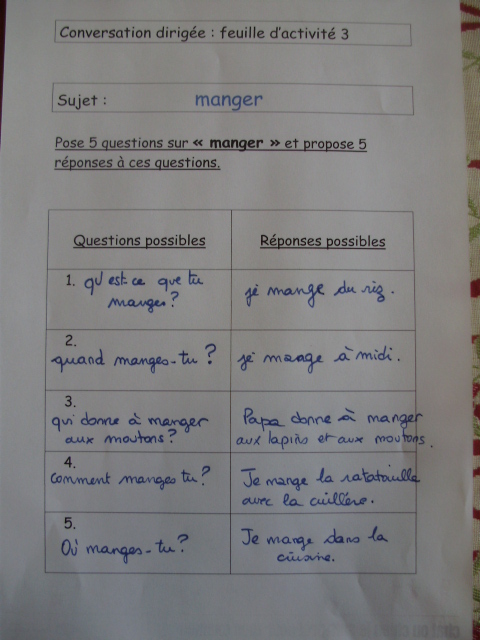 Conversation dirigée : feuille d'activité 3
Sujet : manger
Pose 5 questions sur « manger » et propose 5
réponses à ces questions.
Questions possibles
Réponses possibles
1. qu'est-ce que tu
manges?
je mange du riz.
2.
quand manges-tu ?
je mange à midi.
3.
qui donne à manger
aux moutons?
Papa donne à manger
aux lapins et aux moutons.
4.
Comment manges tu?
Je mange la ratatouille
avec la cuillère.
5.
Où manges-tu?
Je mange dans la
cuisine.